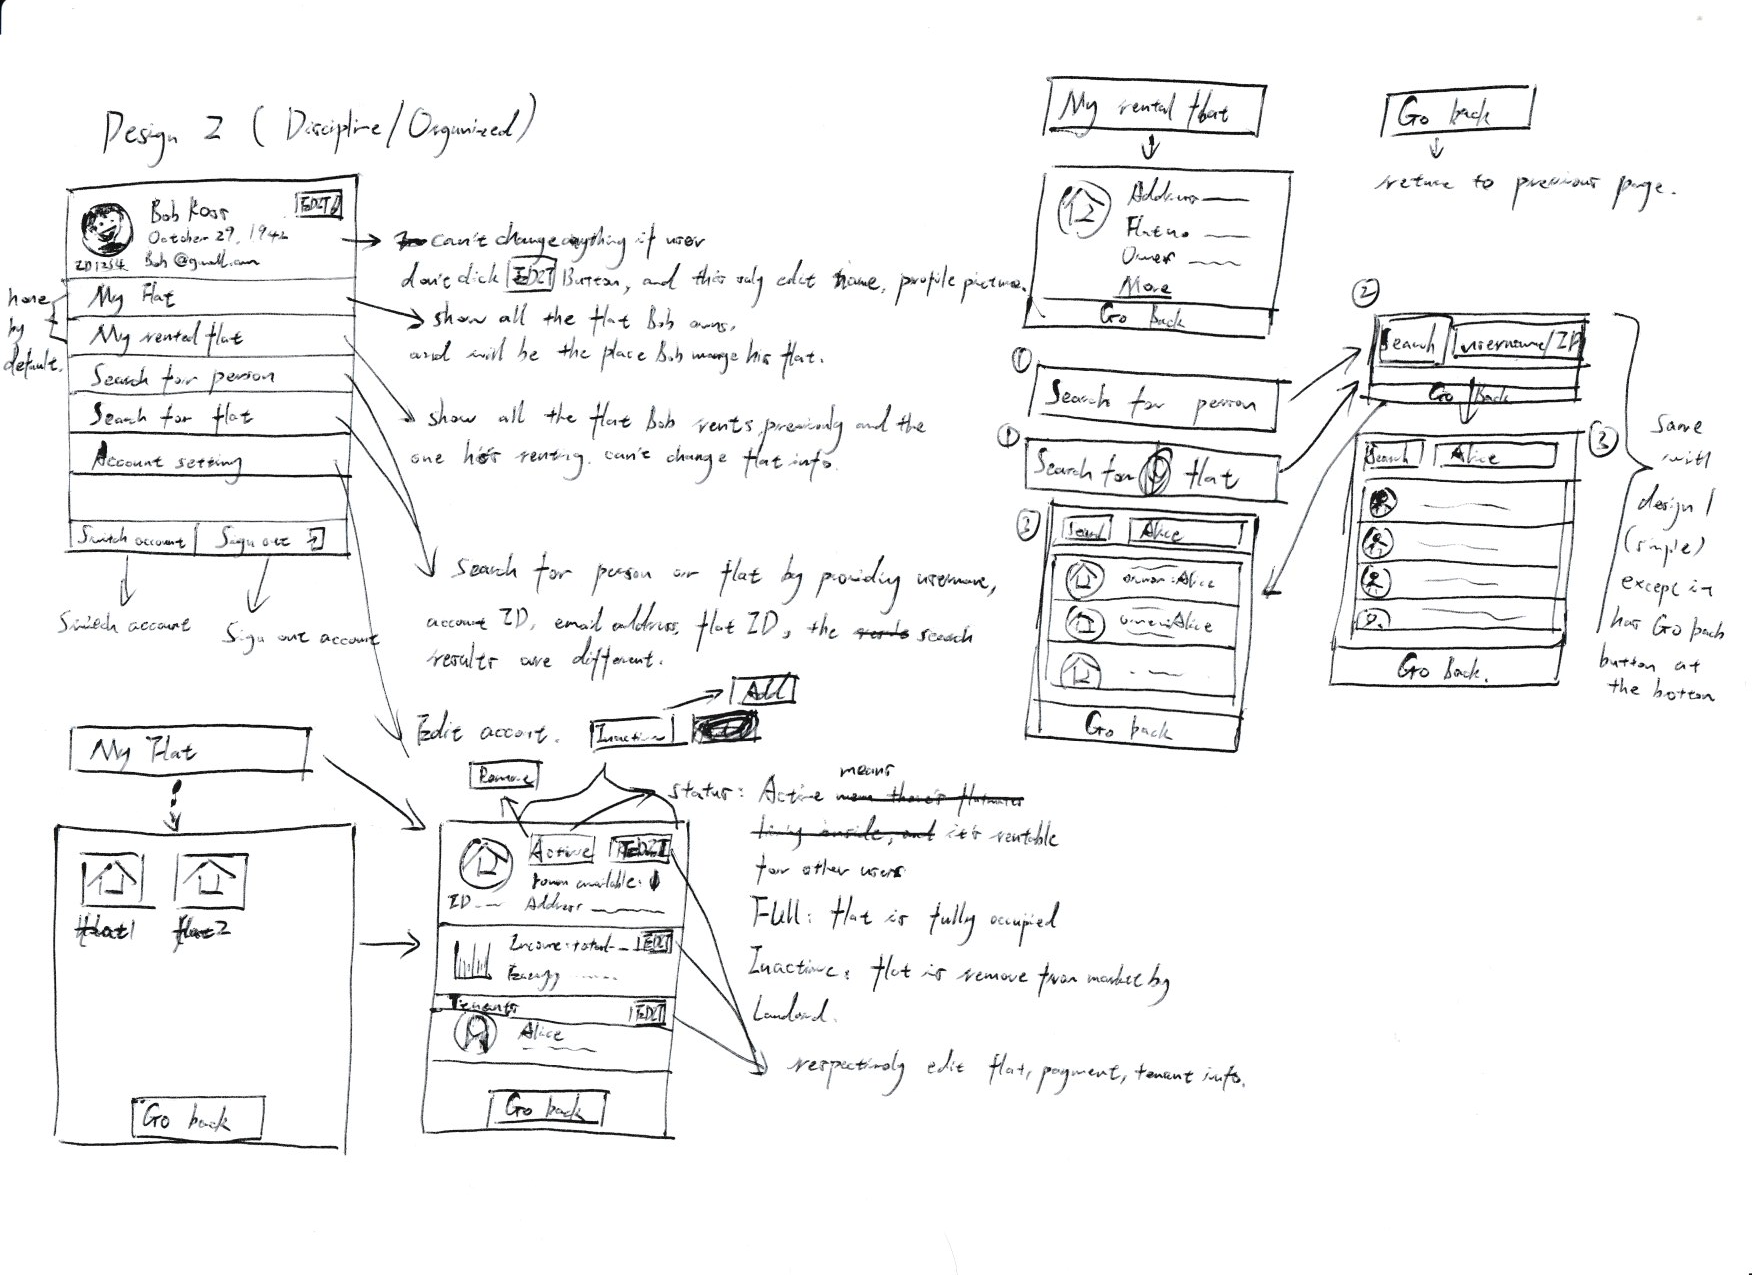 Design 2 ( Discipline/Organized)
Bob Ross
EDIT
October 29, 1942
Bob @gmail.com
ID1234
My Flat
My rented flat
Search for person
Search for flat
Account setting
Switch account
Sign out
none
by
default.
Switch account
Sign out account
can't change anything if user
don't click EDIT Button, and this only edit name, profile picture.
show all the flat Bob owns.
and will be the place Bob manage his flat.
show all the flat Bob rents previously and the
one he's renting. can't change flat info.
Search for person or flat by providing username,
account ID, email address, flat ID, the search
results are different.
Edit account.
My Flat
flat1
flat2
Go back
Add
Inactive
Remove
Active
EDIT
room available:
ID
Address
Income: total
EDIT
Energy
Tenants
EDIT
Alice
Go back
means
status: Active mean there's flatmates
living inside, and it's rentable
for other users
Full: flat is fully occupied
Inactive: flat is remove from market by
Landlord.
respectively edit flat, payment, tenant info.
My rental flat
Address
Flat no
Owner
More
Go Back
Go back
return to previous page.
①
Search for person
①
Search for flat
②
Search
username/ID
Go Back
③
Search
Alice
owner: Alice
owner: Alice
Go back
③
Search
Alice
Go Back.
same
with
design 1
(simple)
except it
has Go back
button at
the bottom